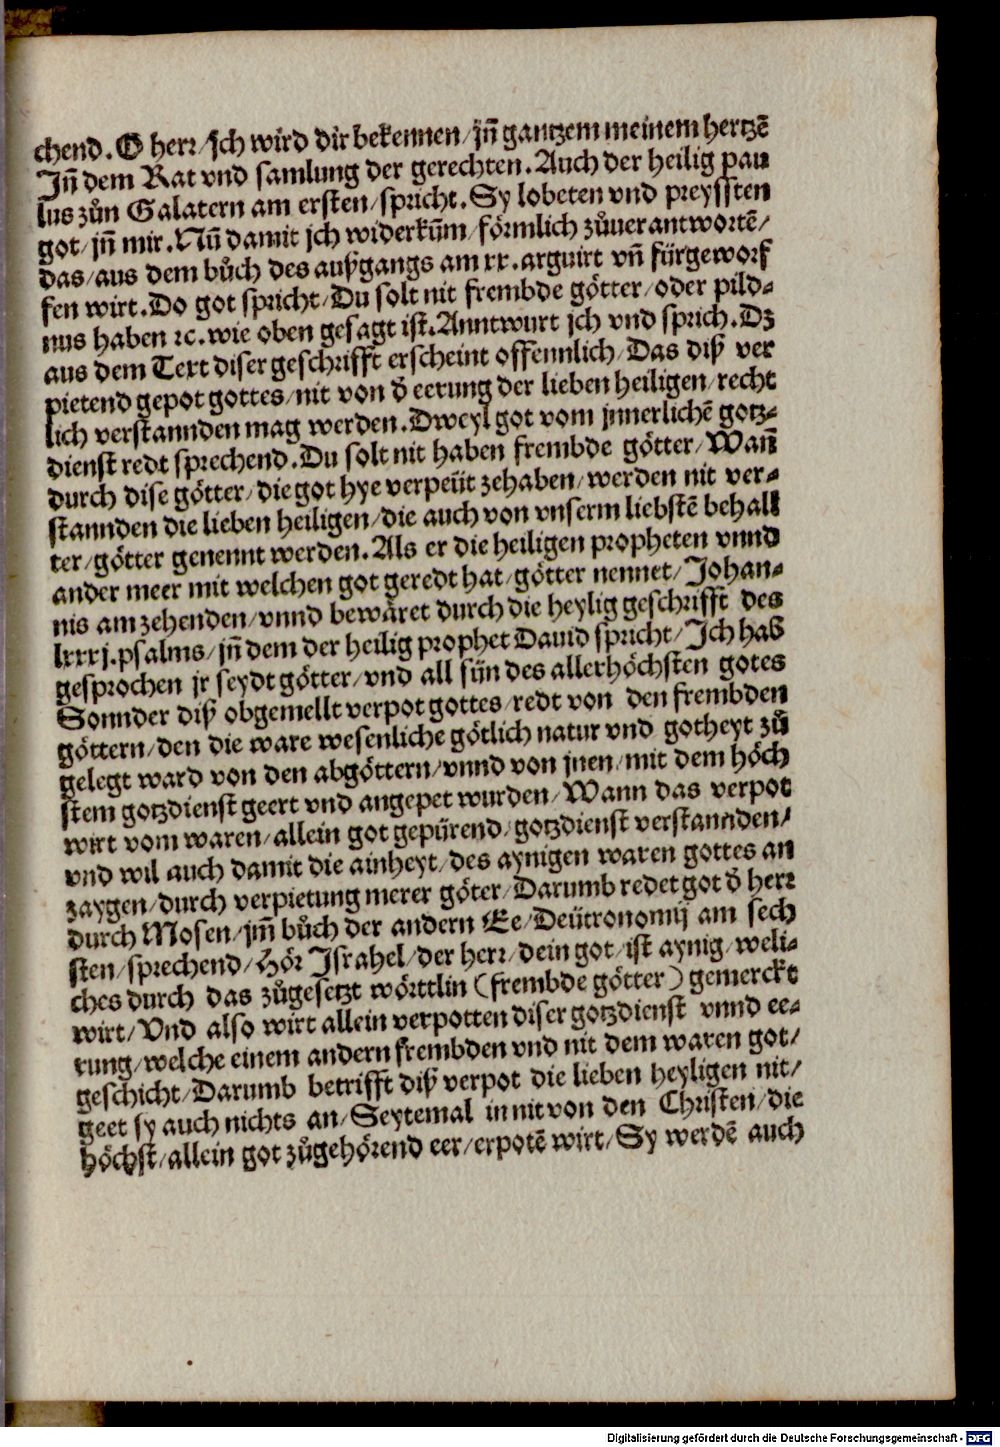 chend. O herr/ jch wird dir bekennen/ jn̄ gantzem meinem hertzē
Jn̄ dem Rat vnd samlung der gerechten. Auch der heilig pau
lus zůn Galatern am ersten/ spricht. Sy lobeten vnd preyssten
got/ jn̄ mir. Nū damit jch widerkūm/ förmlich zůuerantwortē/
das/ aus dem bůch des außgangs am xx. arguirt vn̄ fürgeworf
fen wirt. Do got spricht/ Du solt nit frembde götter/ oder pild⸗
nus haben ꝛc. wie oben gesagt ist. Anntwurt jch vnd sprich. Dz
aus dem Text diser geschrifft erscheint offennlich/ Das diß ver
pietend gepot gottes/ nit von d̄ eerung der lieben heiligen/ recht
lich verstannden mag werden. Dweyl got vom jnnerlichē gotz⸗
dienst redt sprechend. Du solt nit haben frembde götter/ Wan̄
durch dise götter/ die got hye verpeüt zehaben/ werden nit ver⸗
stannden die lieben heiligen/ die auch von vnserm liebstē behall
ter/ götter genennt werden. Als er die heiligen propheten vnnd
ander meer mit welchen got geredt hat/ götter nennet/ Johan⸗
nis am zehenden/ vnnd bewäret durch die heylig geschrifft des
lxxxj. psalms/ jn̄ dem der heilig prophet Dauid spricht/ Jch hab
gesprochen jr seydt götter/ vnd all sün des allerhöchsten gotes
Sonnder diß obgemellt verpot gottes/ redt von den frembden
göttern/ den die ware wesenliche götlich natur vnd gotheyt zů
gelegt ward von den abgöttern/ vnnd von jnen/ mit dem höch
stem gotzdienst geert vnd angepet wurden/ Wann das verpot
wirt vom waren/ allein got gepürend/ gotzdienst verstannden/
vnd wil auch damit die ainheyt/ des aynigen waren gottes an
zaygen/ durch verpietung merer göter/ Darumb redet got d̄ herr
durch Mosen/ jm̄ bůch der andern Ee/ Deütronomij am sech
sten/ sprechend/ Hör Jsrahel/ der herr/ dein got/ ist aynig/ weli⸗
ches durch das zůgesetzt wörttlin (frembde götter) gemerckt
wirt/ Vnd also wirt allein verpotten diser gotzdienst vnnd ee⸗
rung/ welche einem andern frembden vnd nit dem waren got/
geschicht/ Darumb betrifft diß verpot die lieben heyligen nit/
geet sy auch nichts an/ Seytemal in nit von den Christen/ die
höchst/ allein got zůgehörend eer/ erpotē wirt/ Sy werdē auch
Digitalisierung gefördert durch die Deutsche Forschungsgemeinschaft - DFG